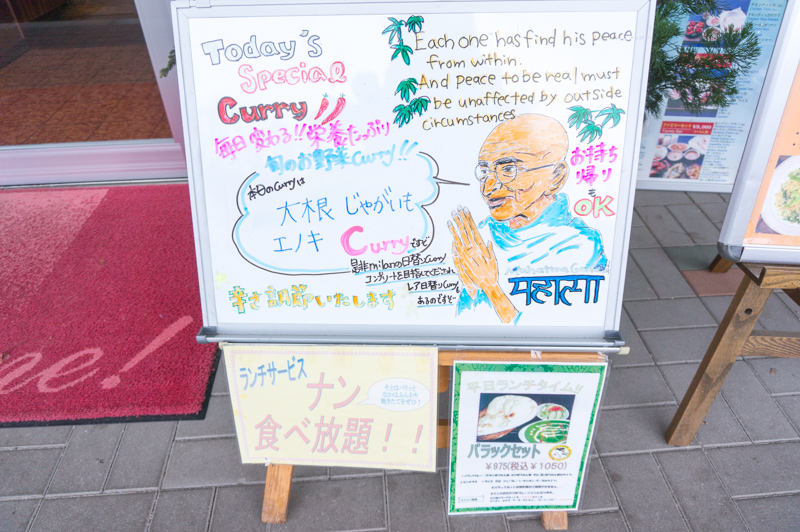 Today's
Special
Curry
毎日変わる!!栄養たっぷり
旬のお野菜Curry!!
本日のCurryは
大根 じゃがいも
エノキ Curryですど
是非milanの日替りCurry
コンプリートを目指してくだされ
レア日替りCurryも
あるのですぞ…
辛さ調節いたします
Each one has find his peace
from within.
And peace to be real must
be unaffected by outside
circumstances
お持ち
帰り
も
OK
महात्मा
ランチサービス
ナン
食べ放題!!
平日ランチタイム!!
バラックセット
¥975(税込¥1050)
me!